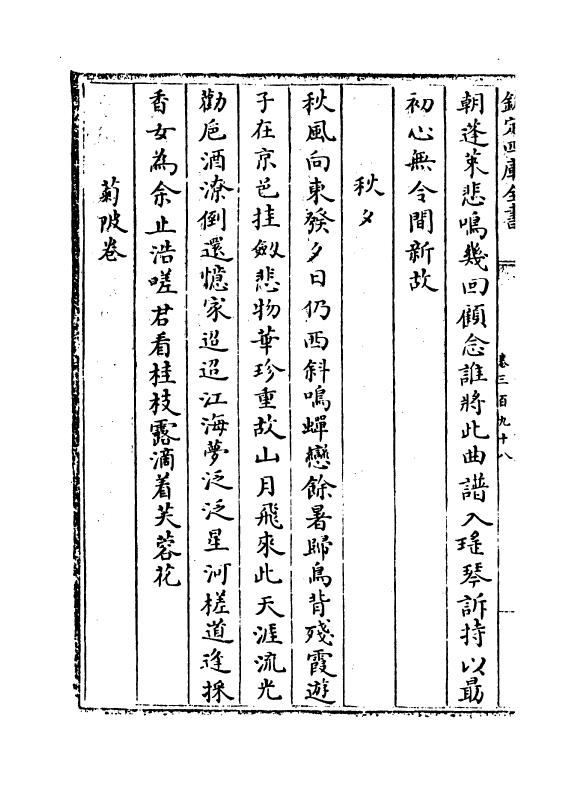 欽定四庫全書
卷三百九十八
朝蓬萊悲鳴幾回顧念誰將此曲譜入瑤琴訴持以最
初心無令間新故
秋夕
秋風向東發夕日仍西斜鳴蟬戀餘暑歸鳥背殘霞遊
子在京邑挂劔悲物華珍重故山月飛來此天涯流光
勸巵酒潦倒還憶家迢迢江海夢泛泛星河槎道逢採
香女為余止浩嗟君看桂枝露滴着芙蓉花
菊陂卷